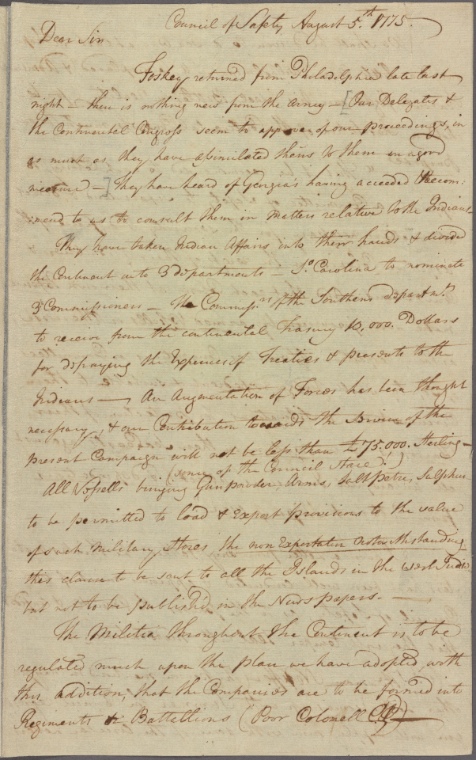 Council of Safety August 5.th 1775.
Dear Sir
Foskey returned from Philadelphia late last
night – there is nothing new from the army – [Our Delegates &
the Continental Congress seem to approve of our proceedings, in
as much as they have assimulated theirs to them in a good
measure –] They have heard of Georgia's having acceeded & recom:
mend to us to consult them in matters relative to the Indians
They have taken Indian Affairs into their hands & divided
the Continent into 3 departments – So. Carolina to nominate
3 Commissioners – The Commissrs. of the Southern Departmt.
to receive from the Continental Treasury 10,000. Dollars
for defraying the Expences of Treaties & presents to the
Indians – An Augmentation of Forces has been thought
necessary, & our Contribution towards the Service of the
present Campaign will not be less than £75.000. Sterling –
All Vessells bringing Gunpowder Arms, Salt Petre, Sulphur
(some of the Council Stare!)
to be permitted to load & Export provisions to the value
of such Military Stores, the non Exportation notwithstanding
this clause to be sent to all the Islands in the West Indies
but not to be published in the News papers. –
The Militia throughout the Continent is to be
regulated much upon the plan we have adopted with
this addition, that the Companies are to be formed into
Regiments & Battellions (Poor Colonell